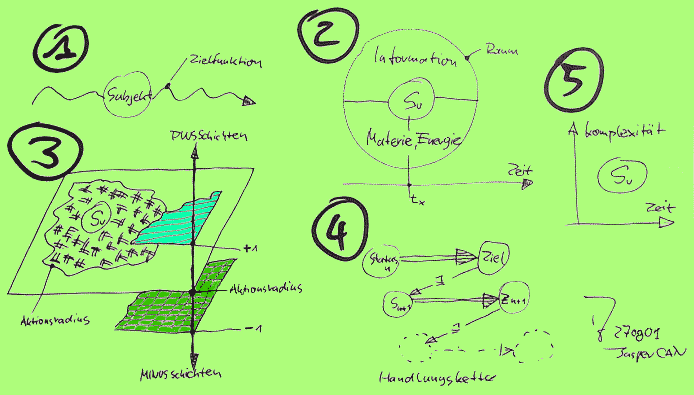 1
Zielfunktion
Subjekt
2
Information
Raum
Su
Materie, Energie
Zeit
tx
3
PLUSSCHICHTEN
Su
+1
Aktionsradius
Aktionsradius
-1
MINUSSCHICHTEN
4
Status n
Ziel
Sn+1
Zn+1
Handlungskette
5
Komplexität
Su
Zeit
270901
JasperCAN